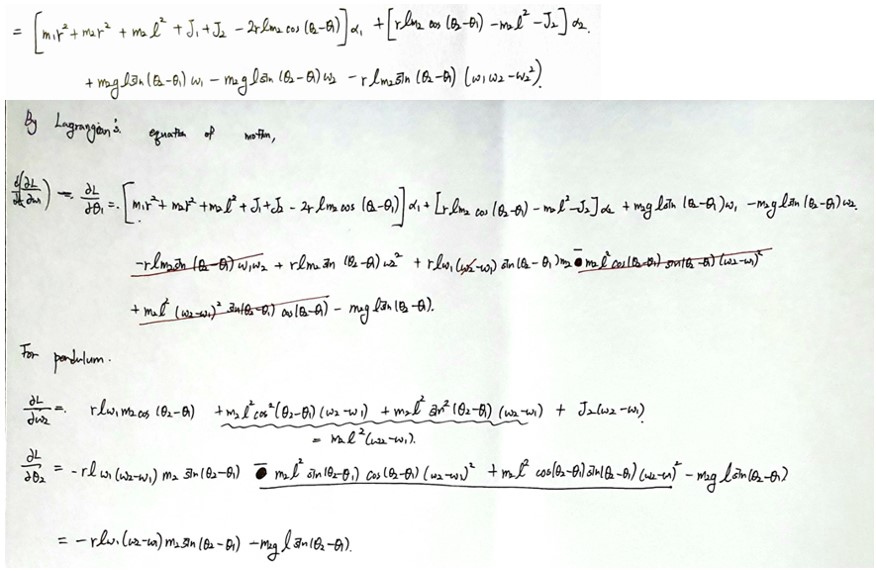 = [m₁r² + m₂r² + m₂l² + J₁ + J₂ - 2rlm₂ cos (θ₂-θ₁)] α₁ + [rlm₂ cos (θ₂-θ₁) - m₂l² - J₂] α₂.
+ m₂glsin(θ₂-θ₁) ω₁ - m₂glsin(θ₂-θ₁) ω₂ - rlm₂sin(θ₂-θ₁) (ω₁ω₂-ω₂²).
By Lagrangian's equation of motion,
d/dt(∂L/∂ω₁) - ∂L/∂θ₁ = [m₁r² + m₂r² + m₂l² + J₁ + J₂ - 2rlm₂cos (θ₂-θ₁)] α₁ + [rlm₂ cos (θ₂-θ₁) - m₂l² - J₂] α₂ + m₂glsin(θ₂-θ₁)ω₁ - m₂glsin(θ₂-θ₁)ω₂.
-rlm₂sin(θ₂-θ₁)ω₁ω₂ + rlm₂sin(θ₂-θ₁)ω₂² + rlω₁(ω₂-ω₁)sin(θ₂-θ₁)m₂ - m₂l²cos(θ₂-θ₁)sin(θ₂-θ₁)(ω₂-ω₁)²
+ m₂l²(ω₂-ω₁)² sin(θ₂-θ₁) cos(θ₂-θ₁) - m₂glsin(θ₂-θ₁).
For pendulum.
∂L/∂ω₂ = rlω₁m₂cos(θ₂-θ₁) + m₂l²cos²(θ₂-θ₁)(ω₂-ω₁) + m₂l² sin²(θ₂-θ₁)(ω₂-ω₁) + J₂(ω₂-ω₁)
= m₂l²(ω₂-ω₁).
∂L/∂θ₂ = -rlω₁(ω₂-ω₁)m₂sin(θ₂-θ₁) - m₂l² sin(θ₂-θ₁) cos(θ₂-θ₁)(ω₂-ω₁)² + m₂l² cos(θ₂-θ₁)sin(θ₂-θ₁)(ω₂-ω₁)² - m₂glsin(θ₂-θ₁)
= -rlω₁(ω₂-ω₁)m₂sin(θ₂-θ₁) - m₂glsin(θ₂-θ₁).